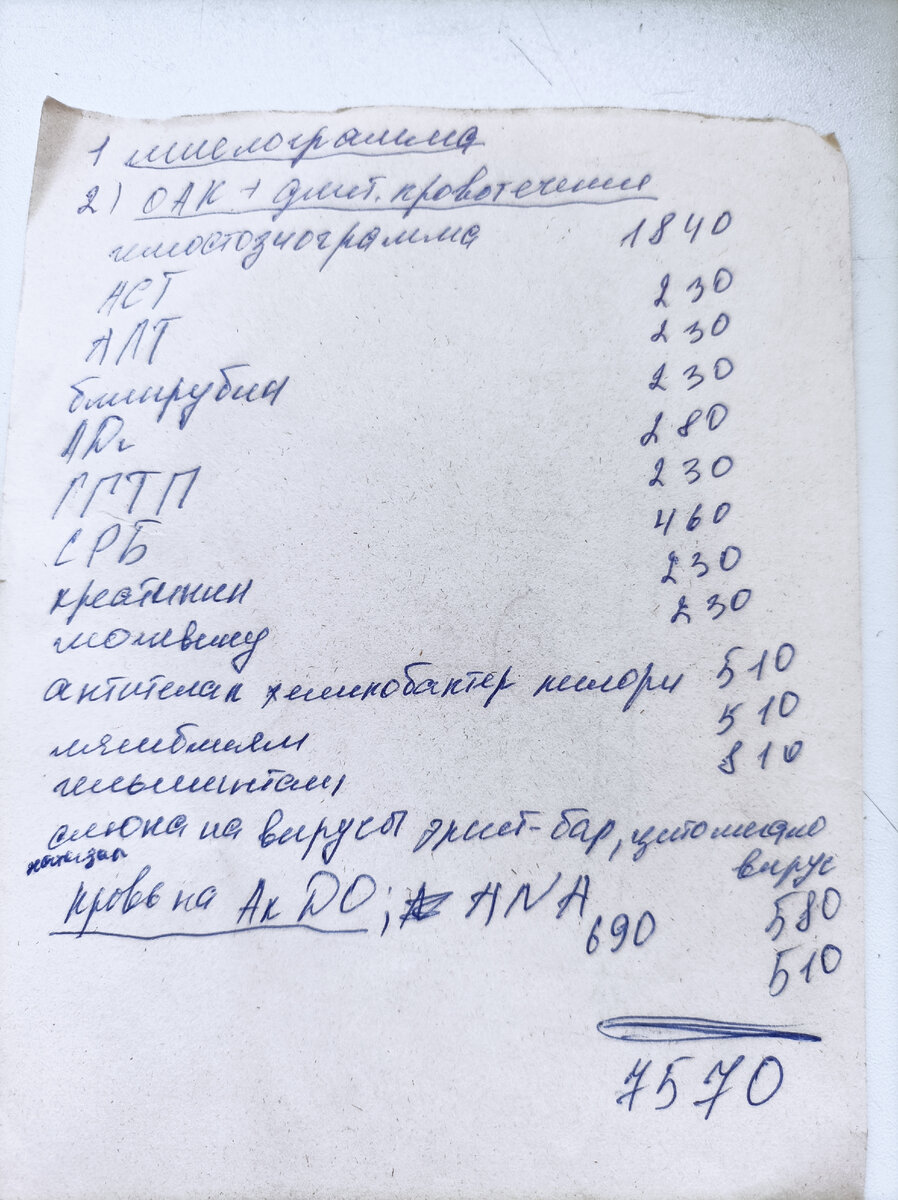 1 миелограмма
2) ОАК + длит. кровотечения
гемостозиограмма 1840
АСТ 230
АЛТ 230
билирубин 230
ЛДг 280
ГГТП 230
СРБ 460
креатинин 230
мочевину 230
антитела к хеликобактер пилори 510
лямблиям 510
гельминтам 810
слюна на вирусы Эпшт-бар, цитомегало
вирус
кровь на Ак DO; ANA 580
690 510
7570